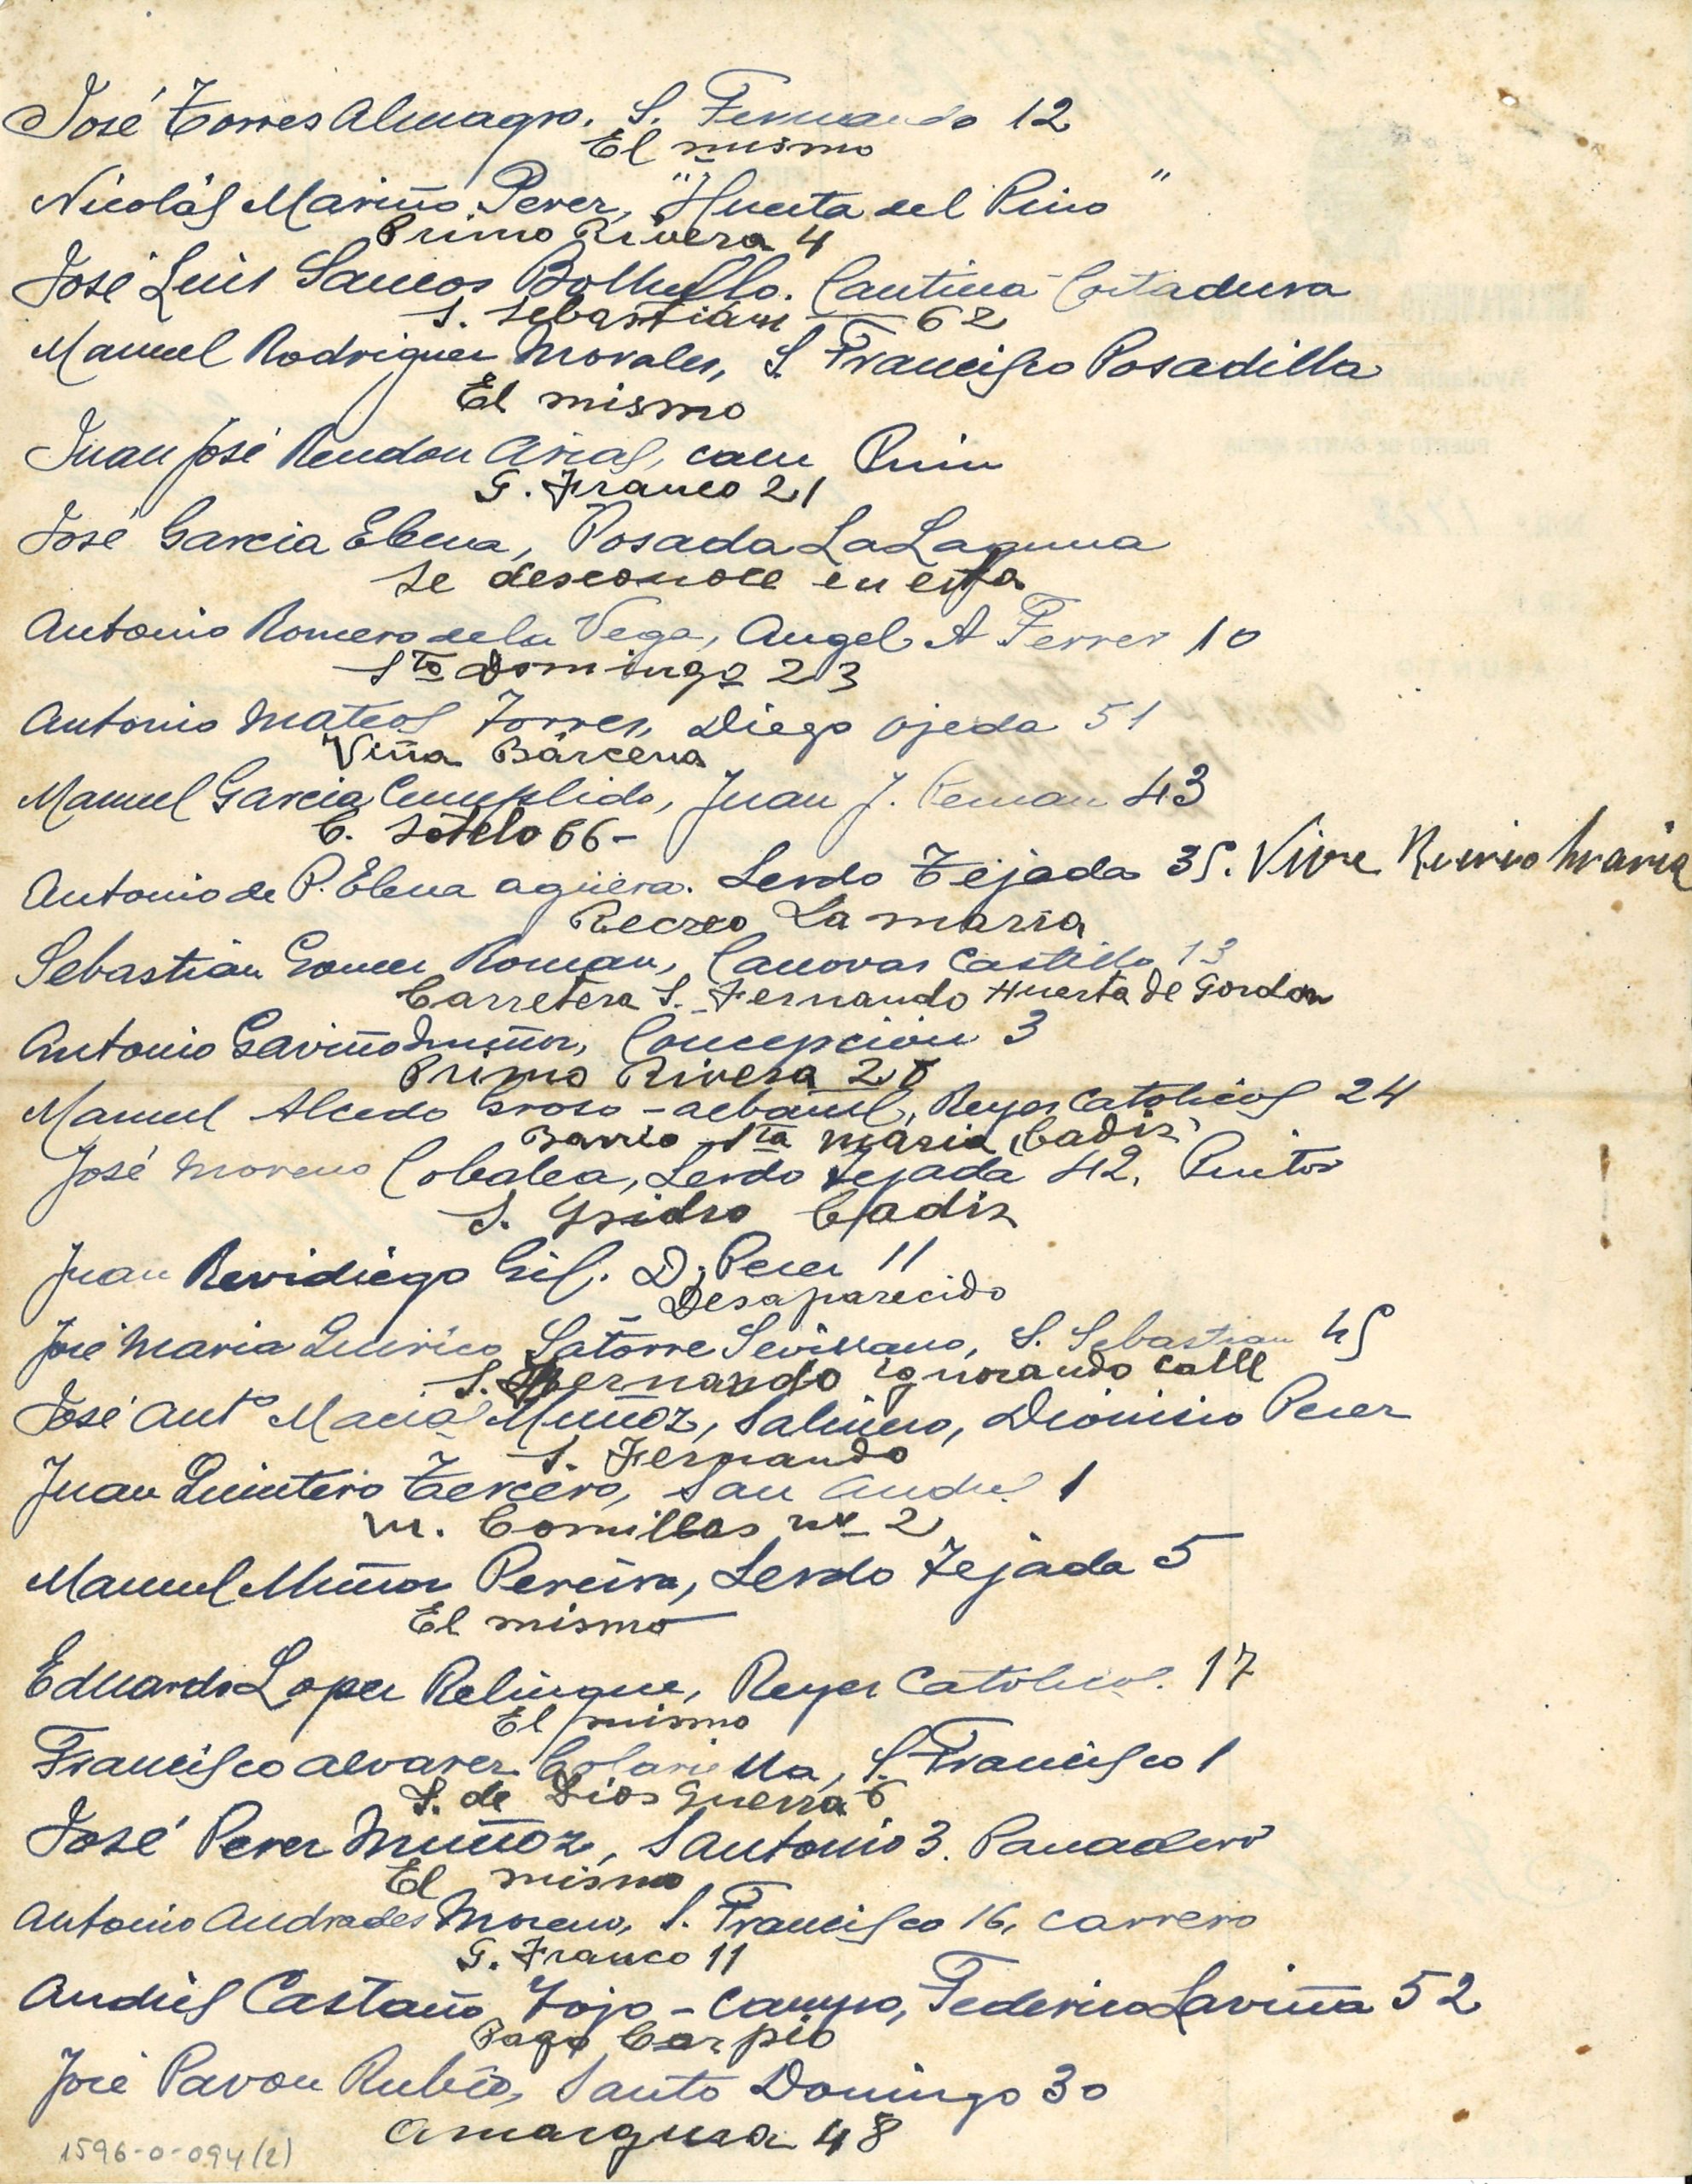 José Torres Almagro. S. Fernando 12
El mismo
Nicolás Mariño Perez, "Huerta del Pino"
Primo Rivera 4
José Luis Sancos Bollullo. Cantina Cortadura
S. Sebastian 62
Manuel Rodriguez Morales, S. Francisco Posadilla
El mismo
Juan José Rendon Arias, Prim
G. Franco 21
José Garcia Elena, Posada La Laguna
Se desconoce en esta
Antonio Romero de la Vega, Angel A Ferrer 10
Sto Domingo 23
Antonio Mateos Torres, Diego Ojeda 51
Viña Bárcena
Manuel Garcia Cumplido, Juan J. Peman 43
C. Sotelo 66-
Antonio de P. Elena Agüera. Lerdo Tejada 35. Vive Recreo Maria
Recreo La maria
Sebastián Gomez Roman, Canovas Castillo 13
Carretera S. Fernando Huerta de Gordon
Antonio Gaviño Muñoz, Concepción 3
Primo Rivera 20
Manuel Alcedo Groso - albañil, Reyes Catolicos 24
Barrio Sta Maria Cadiz
José Moreno Cobalea, Lerdo Tejada 42. Pintor
S. Ysidro Cadiz
Juan Revidiego Gil. D. Perez 11
Desaparecido
José Maria Quirico Latorre Sevillano, S. Sebastian 45
S. Fernando ignorando calle
José Antº Macias Muñoz, Salinero, Dionisio Perez
S. Fernando
Juan Quintero Tercero, San Andres 1
M. Comillas nº 2
Manuel Muñoz Pereira, Lerdo Tejada 5
El mismo
Eduardo Lopez Relinque, Reyes Catolicos. 17
El mismo
Francisco Alvarez S. Francisco 1
S. de Dios Guerra 6
José Perez Muñoz, S Antonio 3. Panadero
El mismo
Antonio Andrades Moreno, S. Francisco 16, carrero
G. Franco 11
Andrés Castaño Tojo - campo, Federico Laviña 52
Pago Carpio
José Pavon Rubio, Santo Domingo 30
Amargura 48
1596-0-094(2)